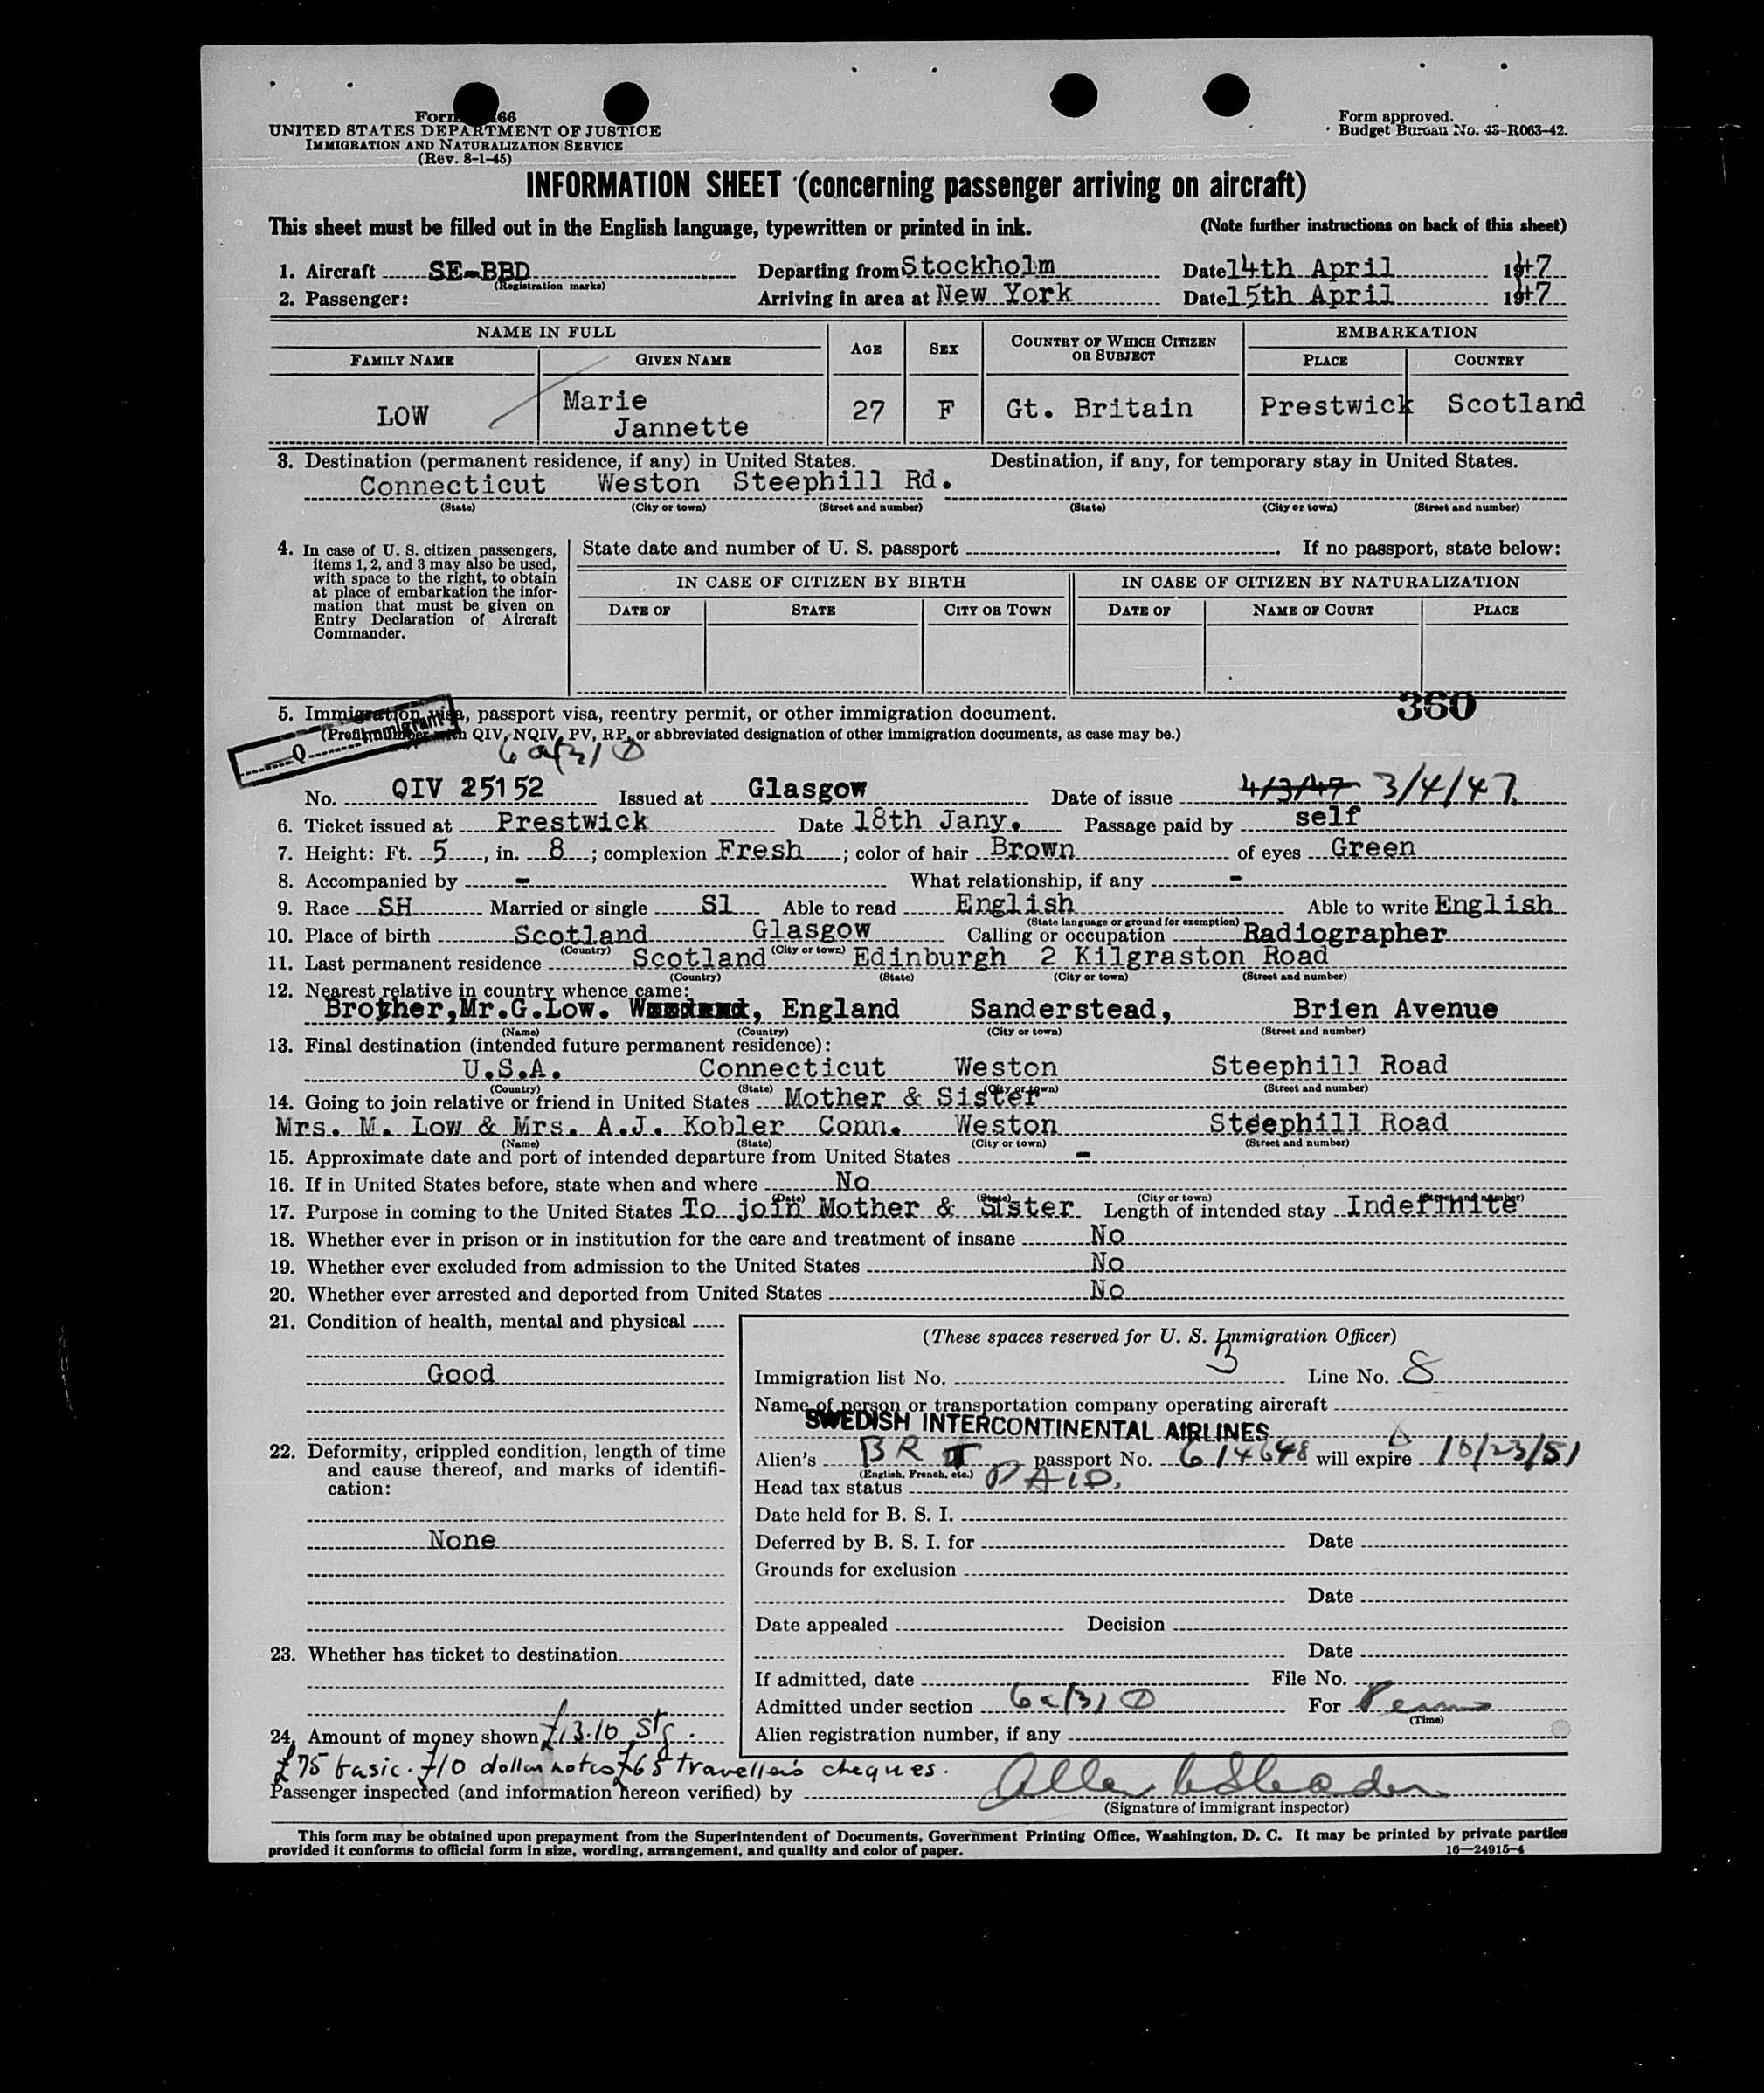 Form 66
UNITED STATES DEPARTMENT OF JUSTICE
IMMIGRATION AND NATURALIZATION SERVICE
(Rev. 8-1-45)
Form approved.
Budget Bureau No. 43-R063-42.
INFORMATION SHEET (concerning passenger arriving on aircraft)
This sheet must be filled out in the English language, typewritten or printed in ink. (Note further instructions on back of this sheet)
1. Aircraft SE-BBD Departing from Stockholm Date 14th April 1947
(Registration marks)
2. Passenger: Arriving in area at New York Date 15th April 1947
NAME IN FULL AGE SEX COUNTRY OF WHICH CITIZEN OR SUBJECT EMBARKATION
FAMILY NAME GIVEN NAME PLACE COUNTRY
LOW Marie Jannette 27 F Gt. Britain Prestwick Scotland
3. Destination (permanent residence, if any) in United States. Destination, if any, for temporary stay in United States.
Connecticut Weston Steephill Rd.
(State) (City or town) (Street and number) (State) (City or town) (Street and number)
4. In case of U. S. citizen passengers, items 1, 2, and 3 may also be used, with space to the right, to obtain at place of embarkation the information that must be given on Entry Declaration of Aircraft Commander.
State date and number of U. S. passport If no passport, state below:
IN CASE OF CITIZEN BY BIRTH IN CASE OF CITIZEN BY NATURALIZATION
DATE OF STATE CITY OR TOWN DATE OF NAME OF COURT PLACE
360
5. Immigration visa, passport visa, reentry permit, or other immigration document.
(Prefix number with QIV, NQIV, PV, RP, or abbreviated designation of other immigration documents, as case may be.)
Q Immigrant
6a(3)
No. QIV 25152 Issued at Glasgow Date of issue 4/3/47 3/4/47.
6. Ticket issued at Prestwick Date 18th Jany. Passage paid by self
7. Height: Ft. 5, in. 8; complexion Fresh; color of hair Brown of eyes Green
8. Accompanied by - What relationship, if any -
9. Race SH Married or single Sl Able to read English Able to write English
(State language or ground for exemption)
10. Place of birth Scotland Glasgow Calling or occupation Radiographer
(Country) (City or town)
11. Last permanent residence Scotland Edinburgh 2 Kilgraston Road
(Country) (State) (City or town) (Street and number)
12. Nearest relative in country whence came:
Brother, Mr.G.Low. England Sanderstead, Brien Avenue
(Name) (Country) (City or town) (Street and number)
13. Final destination (intended future permanent residence):
U.S.A. Connecticut Weston Steephill Road
(Country) (State) (City or town) (Street and number)
14. Going to join relative or friend in United States Mother & Sister
Mrs. M. Low & Mrs. A.J. Kobler Conn. Weston Steephill Road
(Name) (State) (City or town) (Street and number)
15. Approximate date and port of intended departure from United States -
16. If in United States before, state when and where No
(Date) (State) (City or town) (Street and number)
17. Purpose in coming to the United States To join Mother & Sister Length of intended stay Indefinite
18. Whether ever in prison or in institution for the care and treatment of insane No
19. Whether ever excluded from admission to the United States No
20. Whether ever arrested and deported from United States No
21. Condition of health, mental and physical
Good
22. Deformity, crippled condition, length of time and cause thereof, and marks of identification:
None
23. Whether has ticket to destination
24. Amount of money shown £13.10 Stg.
£75 basic. £10 dollar notes £65 travellers cheques.
(These spaces reserved for U. S. Immigration Officer)
Immigration list No. 3 Line No. 8
Name of person or transportation company operating aircraft
SWEDISH INTERCONTINENTAL AIRLINES
Alien's BR passport No. 614648 will expire 10/23/51
(English, French, etc.)
Head tax status PAID.
Date held for B. S. I.
Deferred by B. S. I. for Date
Grounds for exclusion
Date
Date appealed Decision
Date
If admitted, date File No.
Admitted under section 6a(3) For Perm
(Time)
Alien registration number, if any
Passenger inspected (and information hereon verified) by
(Signature of immigrant inspector)
This form may be obtained upon prepayment from the Superintendent of Documents, Government Printing Office, Washington, D. C. It may be printed by private parties
provided it conforms to official form in size, wording, arrangement, and quality and color of paper.
16—24915-4